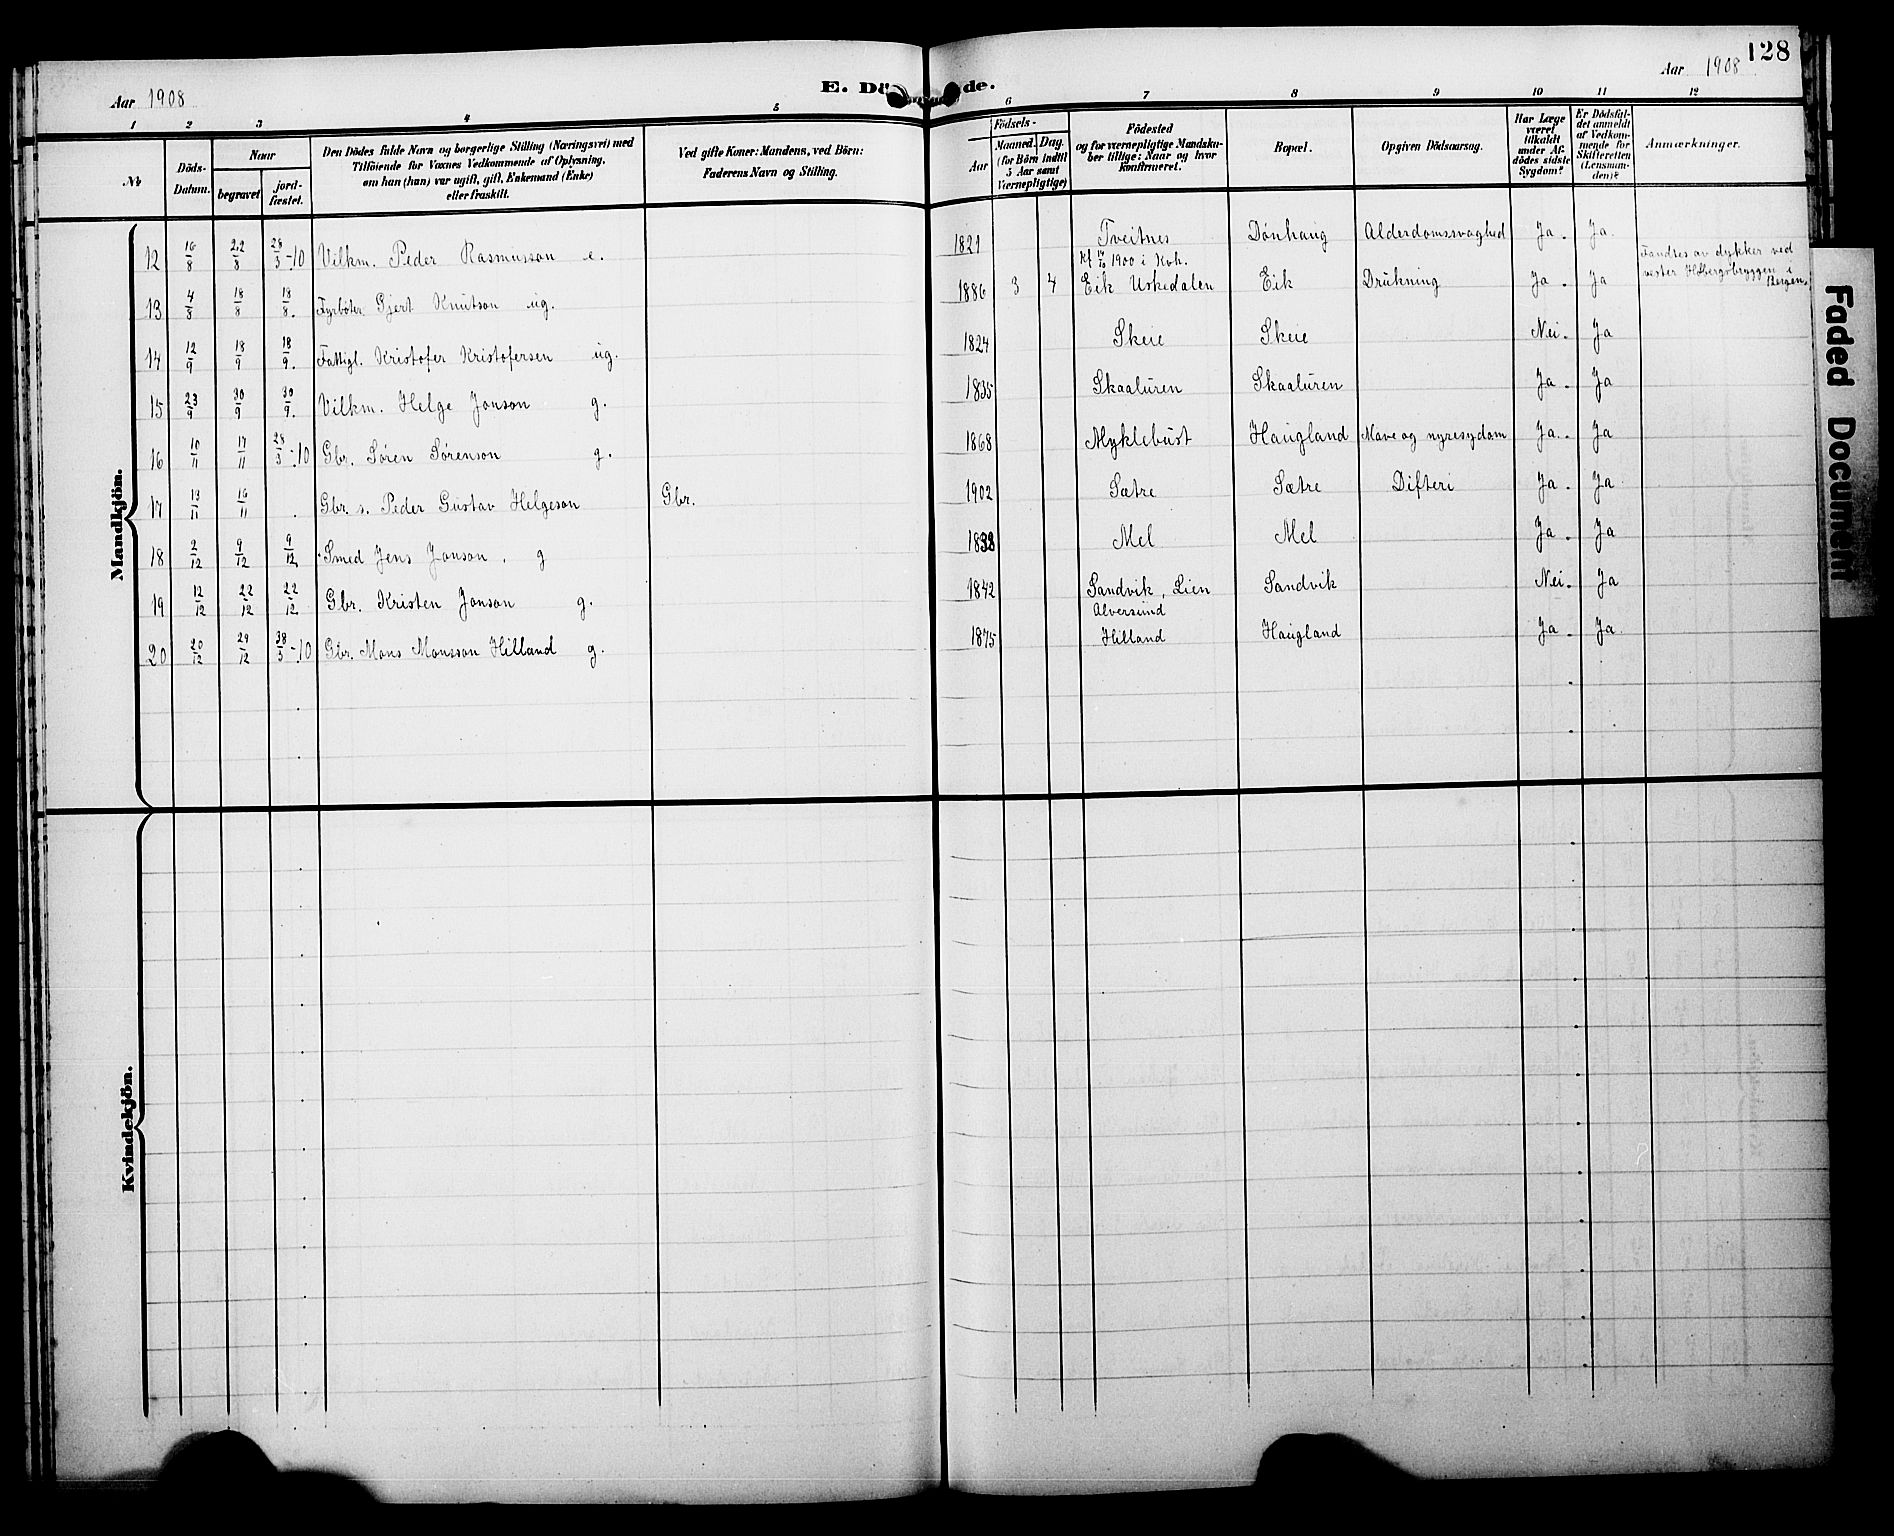 128
Aar 1908
E. Dö de.
Aar 1908
1 2 3 4 5 6 7 8 9 10 11 12
№
Döds-Datum.
Naar
begravet
jord-fæstet.
Den Dödes fulde Navn og borgerlige Stilling (Næringsvei) med
Tilföiende for Voxnes Vedkommende af Oplysning,
om han (hun) var ugift, gift, Enkemand (Enke)
eller fraskilt.
Ved gifte Koner: Mandens, ved Börn:
Faderens Navn og Stilling.
Födsels-
Aar
Maaned.
Dag.
(for Börn indtil
5 Aar samt
Værnepligtige)
Födested
og for værnepligtige Mandska-
ber tillige: Naar og hvor
konfirmeret.
Bopæl.
Opgiven Dödsaarsag.
Har Læge
været
tilkaldt
under Af-
dödes sidste
Sygdom?
Er Dödsfal-
det anmeldt
af Vedkom-
mende for
Skifteretten
(Lensman-
den)?
Anmærkninger.
Mandkjön.
12 16/8 22/8 28/3-10 Vilkm. Peder Rasmusson e. 1821 Tveitnes Dönhaug Alderdomssvaghed Ja. Ja.
Kf 14/10 1900 i Kvh.
13 4/8 18/8 18/8. Fyrböter Gjert Knutson ug. 1886 3 4 Eik Uskedalen Eik Drukning Ja. Ja Fandtes av dykker ved
vester Holbergsbryggen i
Bergen.
14 12/9 18/9 18/9. Fattigl. Kristofer Kristofersen ug. 1824 Skeie Skeie Nei. Ja
15 23/9 30/9 30/9. Vilkm. Helge Jonson g. 1835 Skaaluren Skaaluren Ja. Ja
16 10/11 17/11 28/3-10 Gbr. Sören Sörenson g. 1868 Myklebust Haugland Mave og nyresygdom Ja. Ja
17 13/11 16/11 Gbr. s. Peder Gustav Helgeson Gbr. 1902 Sætre Sætre Difteri Ja. Ja
18 2/12 9/12 9/12. Smed Jens Jonson. g Mel Mel Ja. Ja
19 12/12 22/12 22/12. Gbr. Kristen Jonson g. 1842 Sandvik, Lien Sandvik Nei. Ja
Alversund
20 20/12 29/12 38/3-10 Gbr. Mons Monsson Hilland g. 1875 Hilland Haugland Ja. Ja.
Kvindekjön.
Faded Document